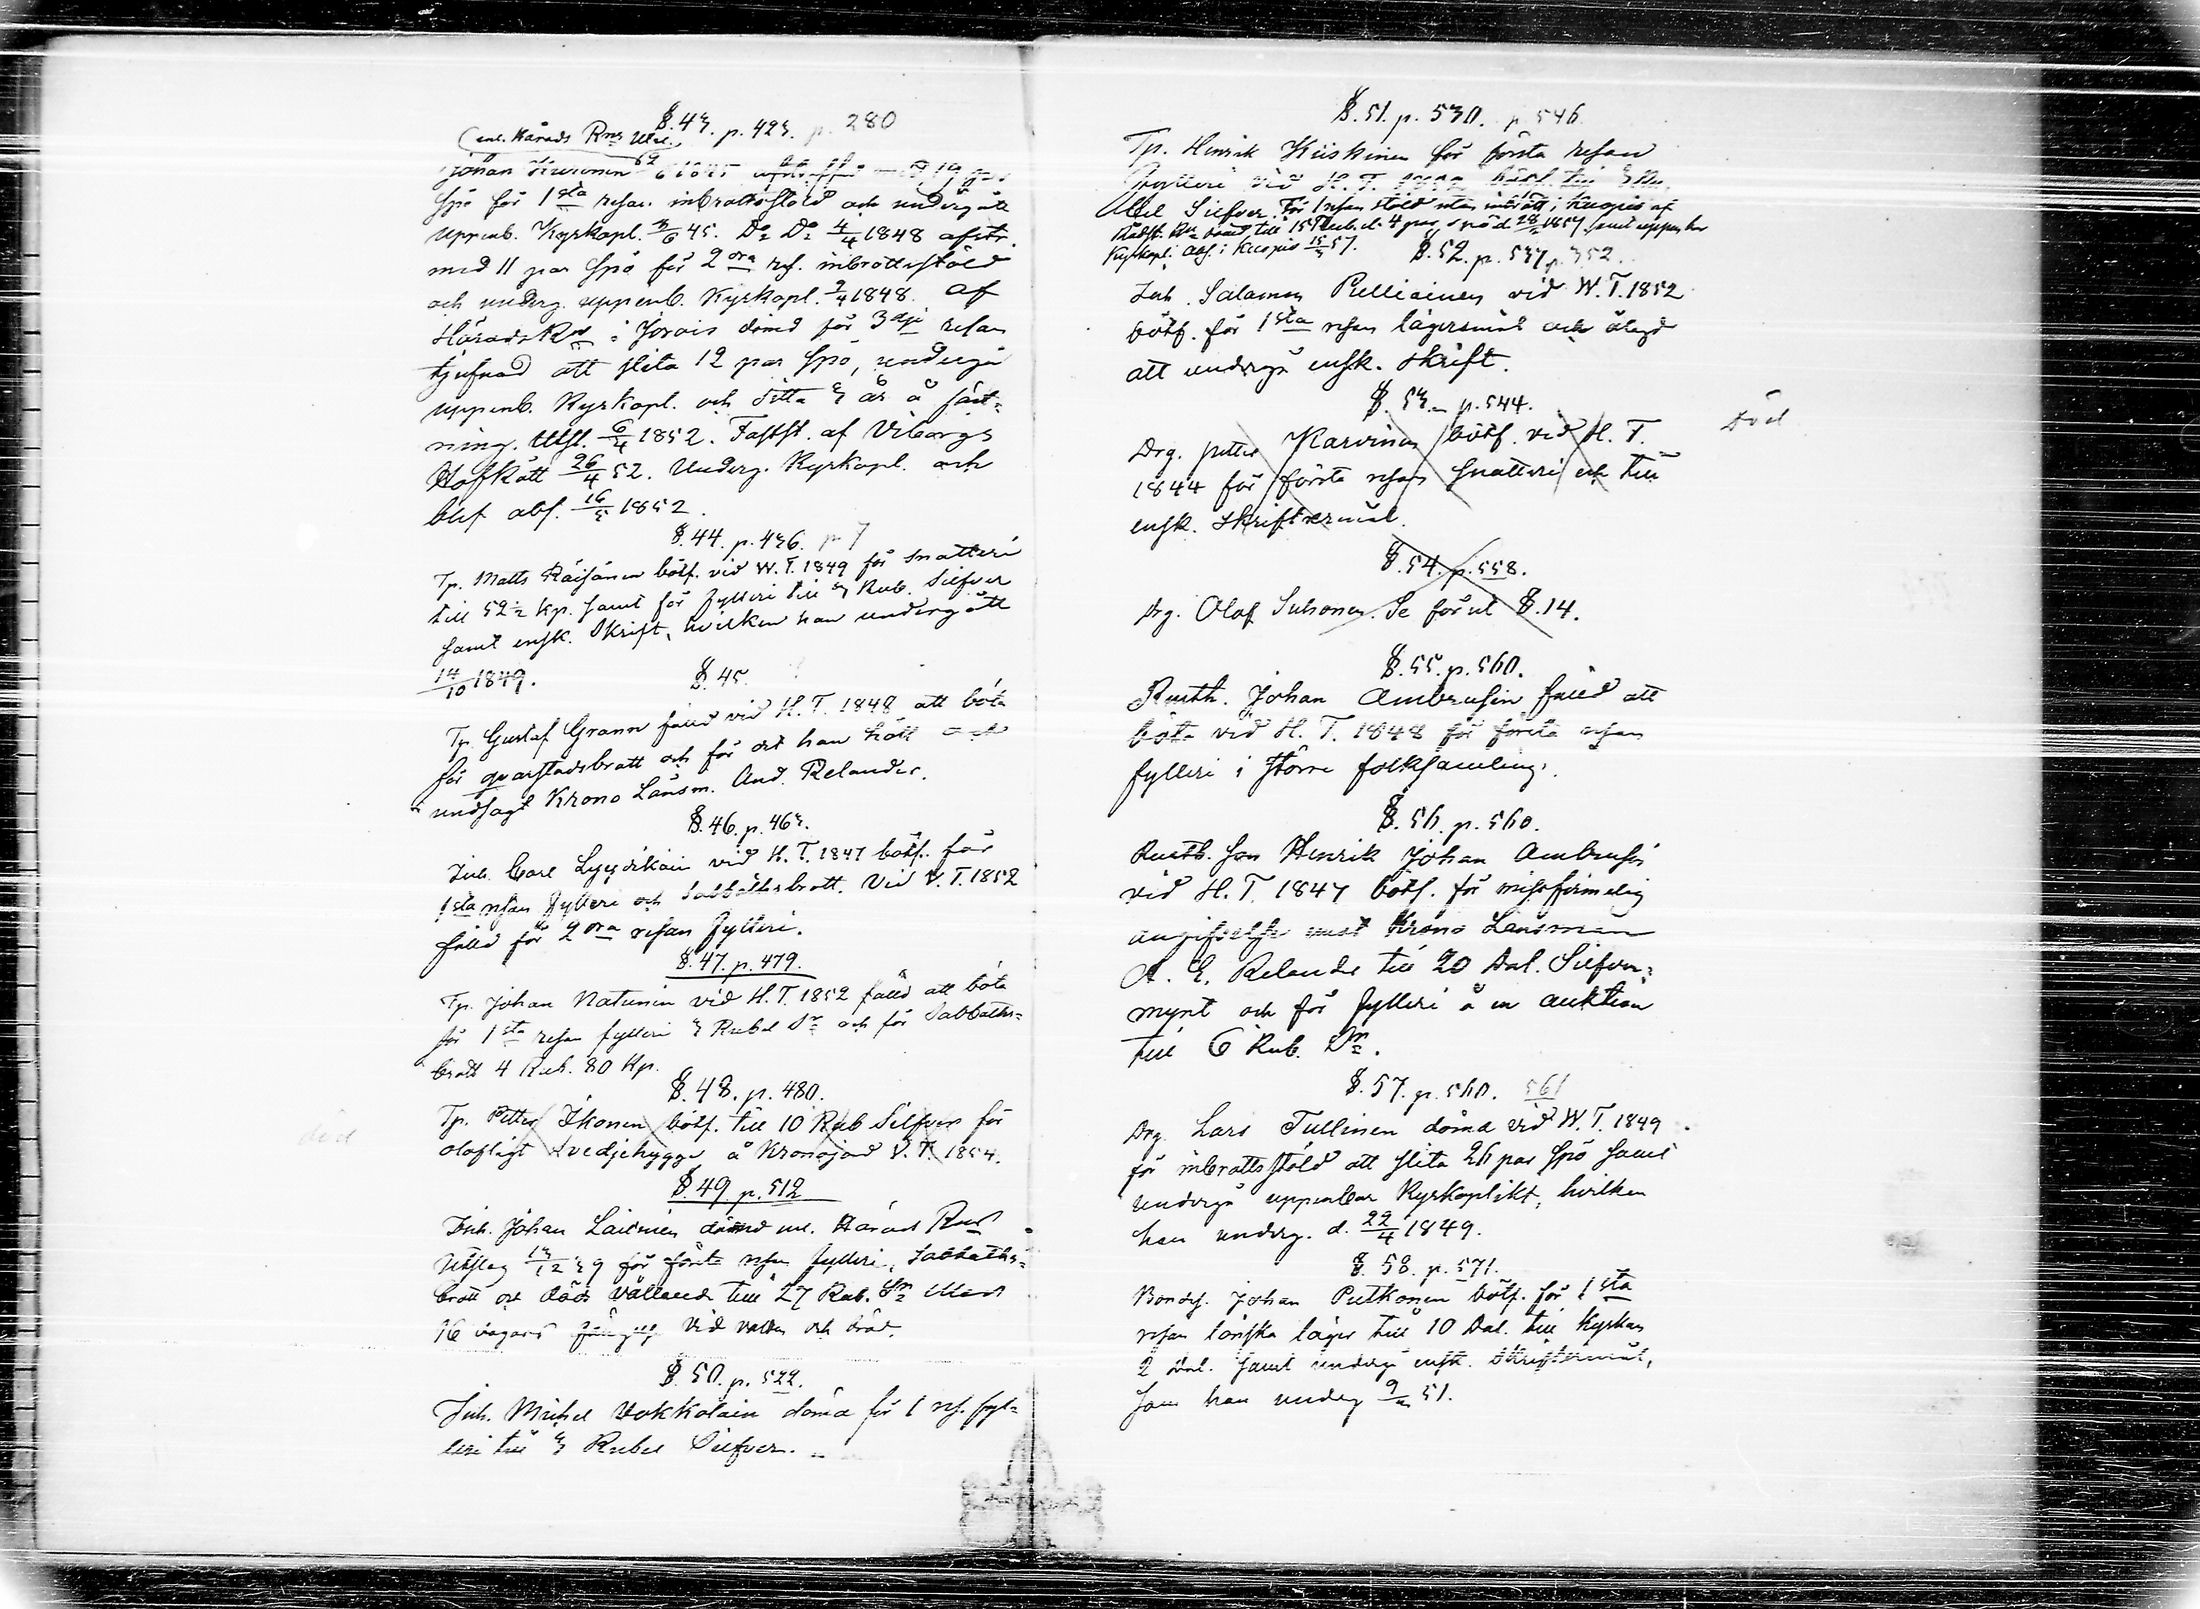 §. 43. p. 423. p. 280
enl. Härads Rns Utsl.
Johan Kuronen 1845 afstraffad med 19 par
spö för 1sta resan inbrottsstöld och undergått
uppenb. Kyrkopl. 3/6 45. Do Do 4/4 1848 afstr.
med 11 par spö för 2dra res. inbrottsstöld
och underg. uppenb. Kyrkopl. 9/4 1848. Af
HäradsRn i Jorois dömd för 3dje resan
tjufnad att slita 12 par spö, undergå
uppenb. Kyrkopl. och sitta 3 år å fäst-
ning. Utsl. 6/4 1852. Fastst. af Viborgs
Hofrätt 26/4 52. Underg. Kyrkopl. och
blef abs. 16/5 1852.
§. 44. p. 436. p 7
Tp. Matts Räisänen bötf. vid W. T. 1849 för snatteri
till 52½ kp. samt för fylleri till 3 Rub. Silfver
samt ensk. Skrift, hvilken han undergått
14/10 1849.
§. 45.
Tp. Gustaf Grann fälld vid H. T. 1848 att böta
för qvarstadsbrott och för det han hått och
undsagt Krono Länsm. And. Relander.
§. 46. p. 463.
Inh. Carl vid H. T. 1847 bötf. för
1sta resan fylleri och Sabbathsbrott. Vid V. T. 1852
fälld för 2dra resan fylleri.
§. 47. p. 479.
Tp. Johan Natunen vid H. T. 1852 fälld att böta
för 1sta resan fylleri 3 Rubel Sr och för Sabbaths-
brott 4 Rub. 80 Kp.
§. 48. p. 480.
Tp. Petter Ikonen bötf. till 10 Rub Silfver för
olofligt svedjehygge å Kronojord V. T. 1854.
död
§. 49. p. 512
Inh. Johan Laininen dömd enl. Härads Rns
Utslag 13/12 39 för första resan fylleri, Sabbaths-
brott och dåds vållande till 27 Rub. Sr
16 dagars fängelse vid vatten och bröd.
§. 50. p. 522.
Inh. Michel Vokkolain dömd för 1 res. fyl-
leri till 3 Rubel Silfver.
§. 51. p. 530. p 546
Tp. Hinrik Kiiskinen för första resan
fylleri vid H. T. 1852 bötf. till 3 Ru-
bel Silfver. För 1 resan stöld utan inbrott i Kuopio af
Rådst. Rn dömd till 15 Rub. el. 4 par spö d. 28/2 1857 samt uppenbar
Kyrkopl. Abs. i Kuopio 15/3 57.
§. 52. p. 537. p 552.
Inh. Salomon Pelliainen vid W. T. 1852
bötf. för 1sta resan lägersmål och ålagd
att undergå ensk. Skrift.
§. 53. p. 544.
Drg. Petter Karvinen bötf. vid H. T.
1844 för första resan snatteri och till
ensk. Skriftermål.
Död
§. 54. p. 558.
Drg. Olof Suhonen. Se förut §. 14.
§. 55. p. 560.
Rusth. Johan Ambrusin fälld att
böta vid H. T. 1848 för första resan
fylleri i större folksamling.
§. 56. p. 560.
Rusth. son Henrik Johan Ambrusin
vid H. T. 1847 bötf. för missfirmelig
angifvelse mot Krono Länsman
A. E. Relander till 20 Dal. Silfver-
mynt och för fylleri å en auktion
till 6 Rub. Sr.
§. 57. p. 560. 561
Drg. Lars Tullinen dömd vid W. T. 1849
för inbrottsstöld att slita 26 par spö samt
undergå uppenbar Kyrkoplikt, hvilken
han underg. d. 22/4 1849.
§. 58. p. 571.
Bondes. Johan Putkonen bötf. för 1sta
resan lönska läger till 10 Dal. till Kyrkan
2 Dal. samt undergå ensk. Skriftermål,
som han underg 51.